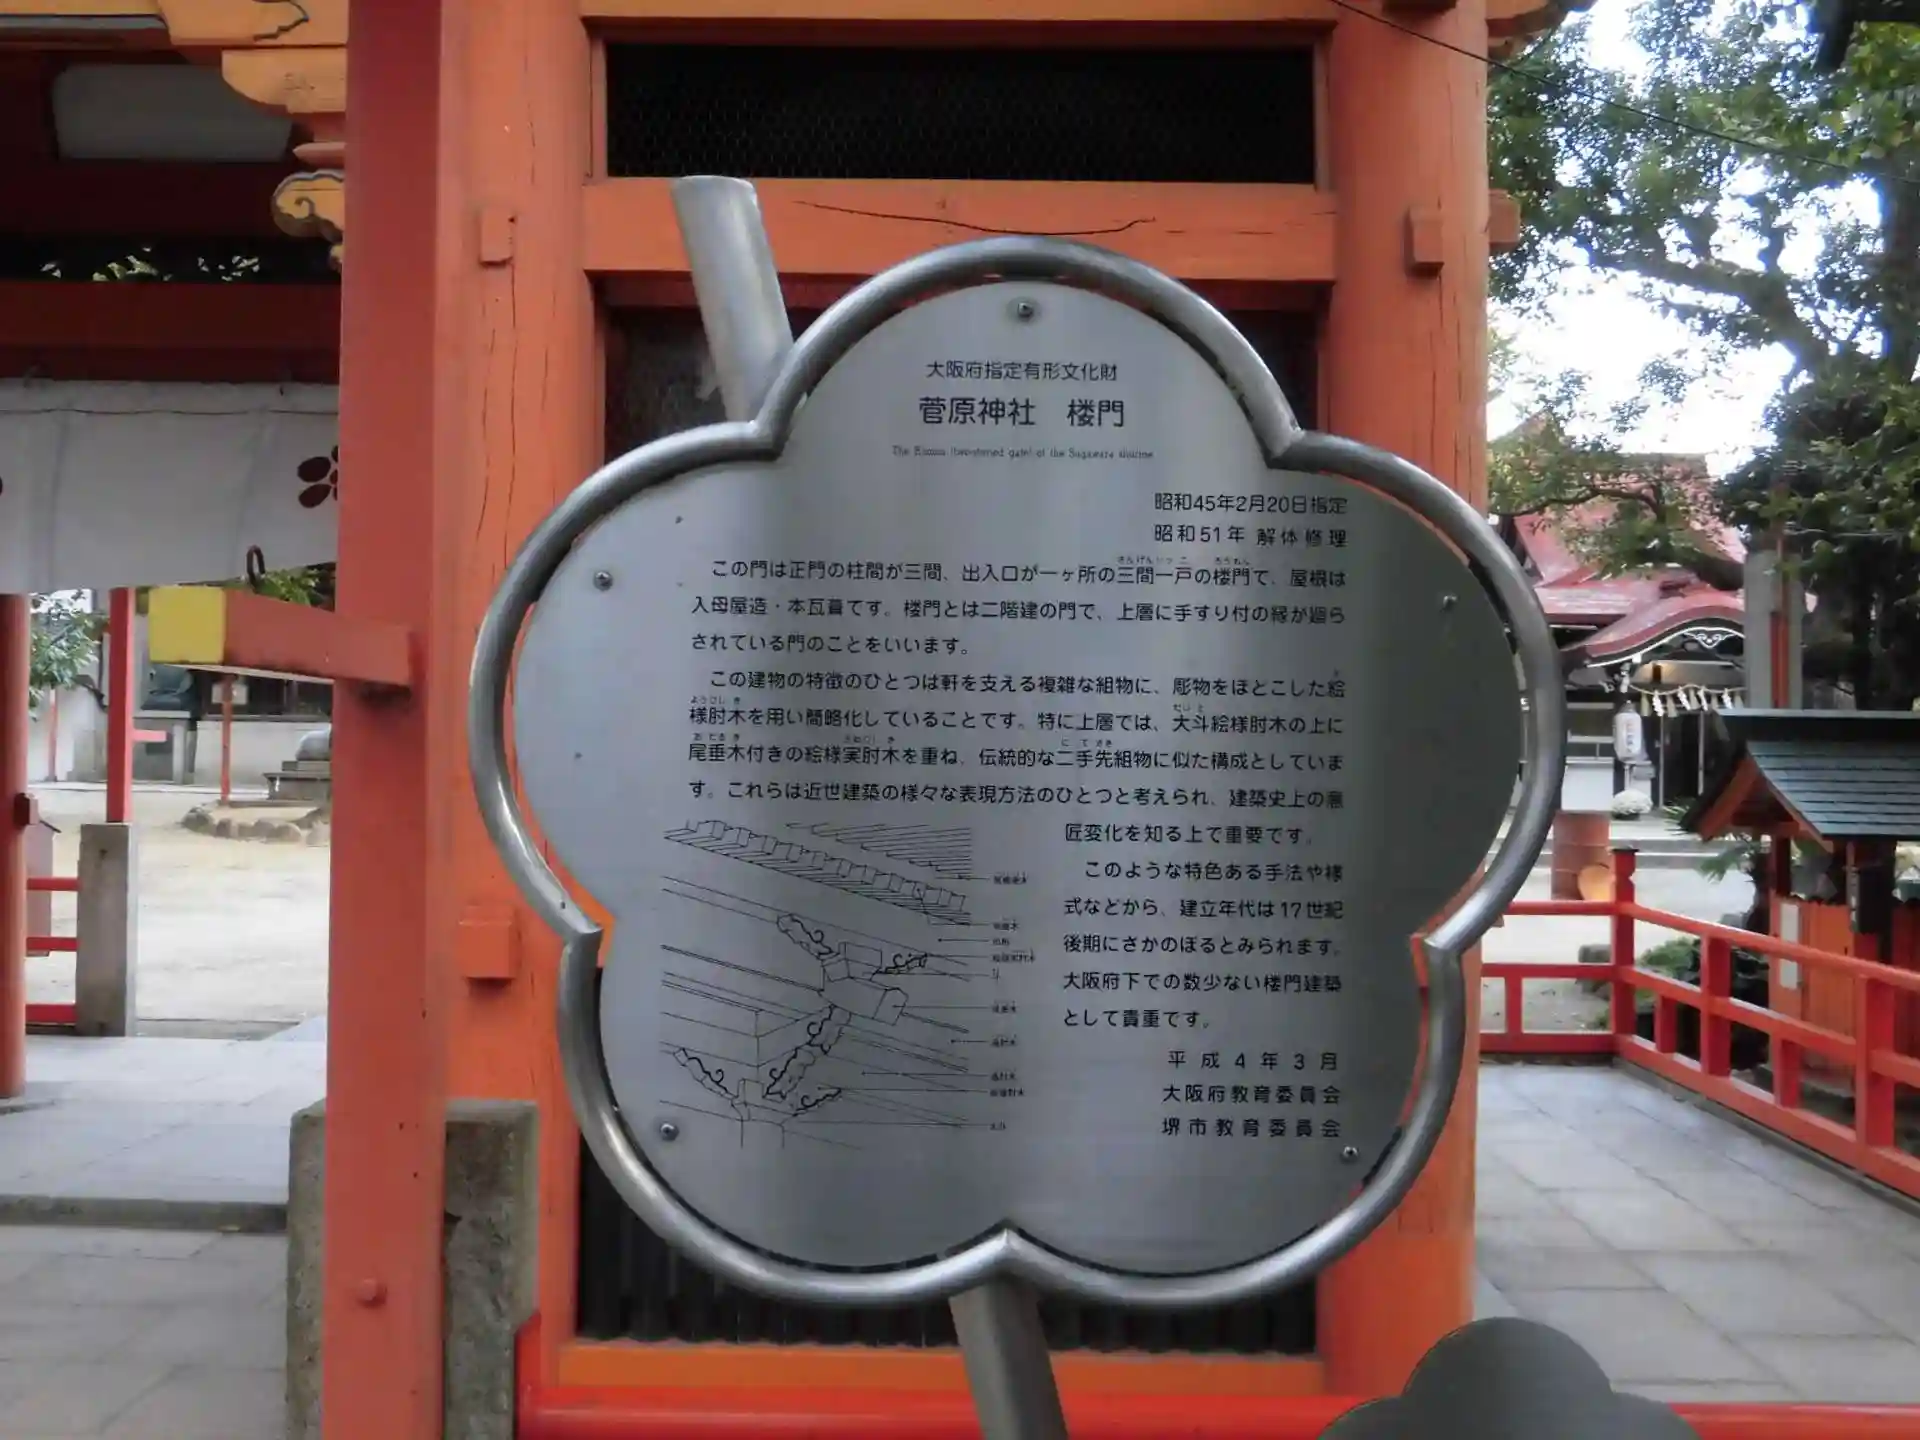 大阪府指定有形文化財
菅原神社 楼門
The Romon (two-storied gate) of the Sugawara shrine
昭和45年2月20日指定
昭和51年 解体修理
この門は正門の柱間が三間、出入口が一ヶ所の三間一戸の楼門で、屋根は
入母屋造・本瓦葺です。楼門とは二階建の門で、上層に手すり付の縁が廻ら
されている門のことをいいます。
この建物の特徴のひとつは軒を支える複雑な組物に、彫物をほどこした絵
様肘木を用い簡略化していることです。特に上層では、大斗絵様肘木の上に
尾垂木付きの絵様実肘木を重ね、伝統的な二手先組物に似た構成としていま
す。これらは近世建築の様々な表現方法のひとつと考えられ、建築史上の意
匠変化を知る上で重要です。
このような特色ある手法や様
式などから、建立年代は17世紀
後期にさかのぼるとみられます。
大阪府下での数少ない楼門建築
として貴重です。
平成4年3月
大阪府教育委員会
堺市教育委員会